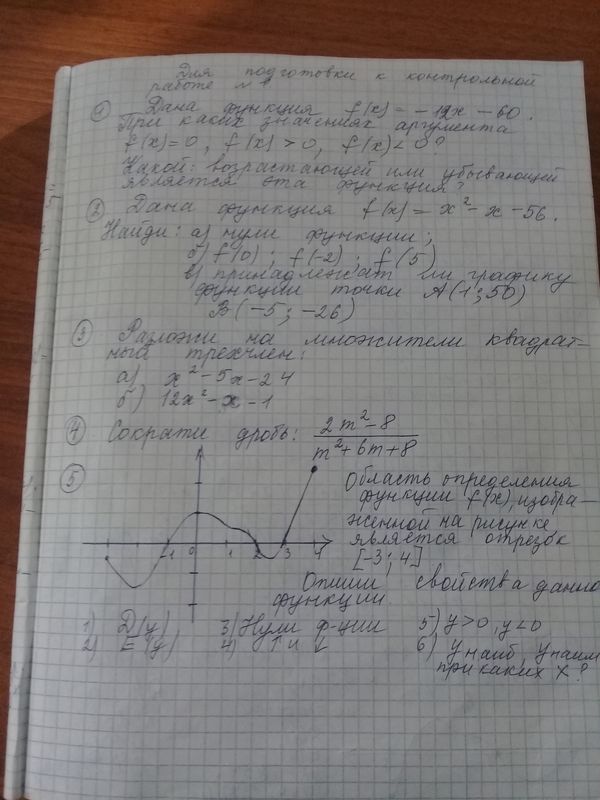 Для подготовки к контрольной
работе №1
① Дана функция f(x) = -12x - 60.
При каких значениях аргумента
f(x)=0, f(x)>0, f(x)<0?
Какой: возрастающей или убывающей
является эта функция?
② Дана функция f(x) = x² - x - 56.
Найди: а) нули функции;
б) f(0); f(-2); f(5)
в) принадлежат ли графику
функции точки A(1; 50)
B(-5; -26)
③ Разложи на множители квадрат-
ный трехчлен:
а) x² - 5x - 24
б) 12x² - x - 1
④ Сократи дробь: (2m² - 8)/(m² + 6m + 8)
⑤ Область определения
функции f(x), изобра-
женной на рисунке
является отрезок
[-3; 4]
-1 0 1 2 3 4
Опиши свойства данно
функции
1) D(y) 3) Нули ф-ции 5) y>0, y<0
2) E(y) 4) ↑ и ↓ 6) y наиб, y наим
при каких x?